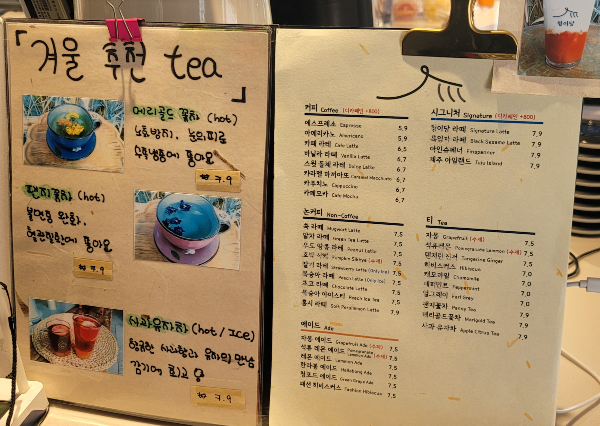 「겨울 추천 tea」
메리골드 꽃차 (hot)
노화방지, 눈의피로
수족냉증에 좋아요
₩ 7.9
팬지꽃차 (hot)
불면증 완화,
혈관질환에 좋아요
₩ 7.9
사과유자차 (hot / Ice)
향긋한 사과향과 유자의 만남
감기에 최고
₩ 7.9
커피 Coffee (디카페인 +800)
에스프레소 Espresso 5,9
아메리카노 Americano 5,9
카페 라떼 Cafe Latte 6,5
바닐라 라떼 Vanilla Latte 6,7
스윗 돌체 라떼 Dolce Latte 6,7
카라멜 마끼아또 Caramel Macchiato 6,7
카푸치노 Cappuccino 6,7
카페모카 Cafe Mocha 6,7
논커피 Non-Coffee
쑥 라떼 Mugwort Latte 7,5
말차 라떼 Green Tea Latte 7,5
우도 땅콩 라떼 Peanut Latte 7,5
호박 식혜 Pumpkin Sikhye (수제) 7,5
딸기 라떼 Strawberry Latte (Only Ice) 7,5
복숭아 라떼 Peach Latte (Only Ice) 7,5
초코 라떼 Chocolate Latte 7,5
복숭아 아이스티 Peach Ice Tea 7,5
홍시 라떼 Soft Persimmon Latte 7,9
에이드 Ade
자몽 에이드 Grapefruit Ade (수제) 7,5
석류 레몬 에이드 Pomegranate Lemon Ade (수제) 7,5
레몬 에이드 Lemon Ade 7,5
한라봉 에이드 Hallabong Ade 7,5
청포도 에이드 Green Grape Ade 7,5
패션 히비스커스 Fashion Hibiscus 7,5
시그니처 Signature (디카페인 +800)
청이당 라떼 Signature Latte 7,9
흑임자 라떼 Black Sesame Latte 7,9
아인슈페너 Einspanner 7,9
제주 아일랜드 Juju Island 7,9
티 Tea
자몽 Grapefruit (수제) 7,5
석류레몬 Pomegranate Lemon (수제) 7,5
탠저린 진저 Tangerine Ginger 7,5
히비스커스 Hibiscus 7,0
캐모마일 Chamomile 7,0
페퍼민트 Peppermint 7,0
얼그레이 Earl Grey 7,0
팬지꽃차 Pansy Tea 7,9
메리골드꽃차 Marigold Tea 7,9
사과 유자차 Apple Citrus Tea 7,9